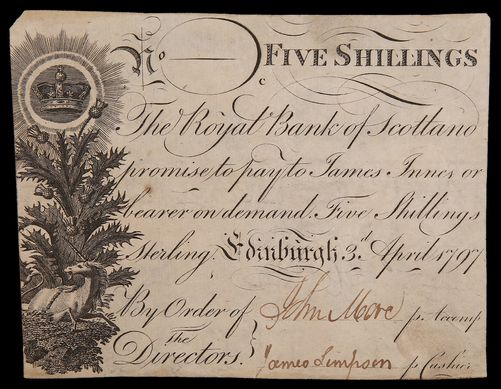 No
FIVE SHILLINGS
The Royal Bank of Scotland
promise to pay to James Innes or
bearer on demand. Five Shillings
Sterling. Edinburgh 3d. April 1797
By Order of John More p. Accomp
the
Directors. James Simpson p Cashier